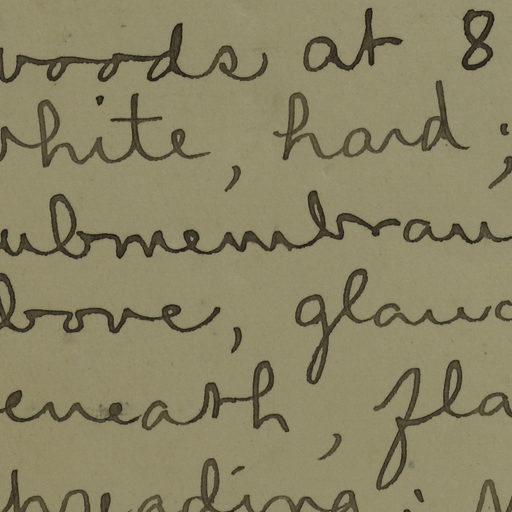 woods at 8
white, hard;
ubmembran
bove, glauc
eneath, fla
preading;